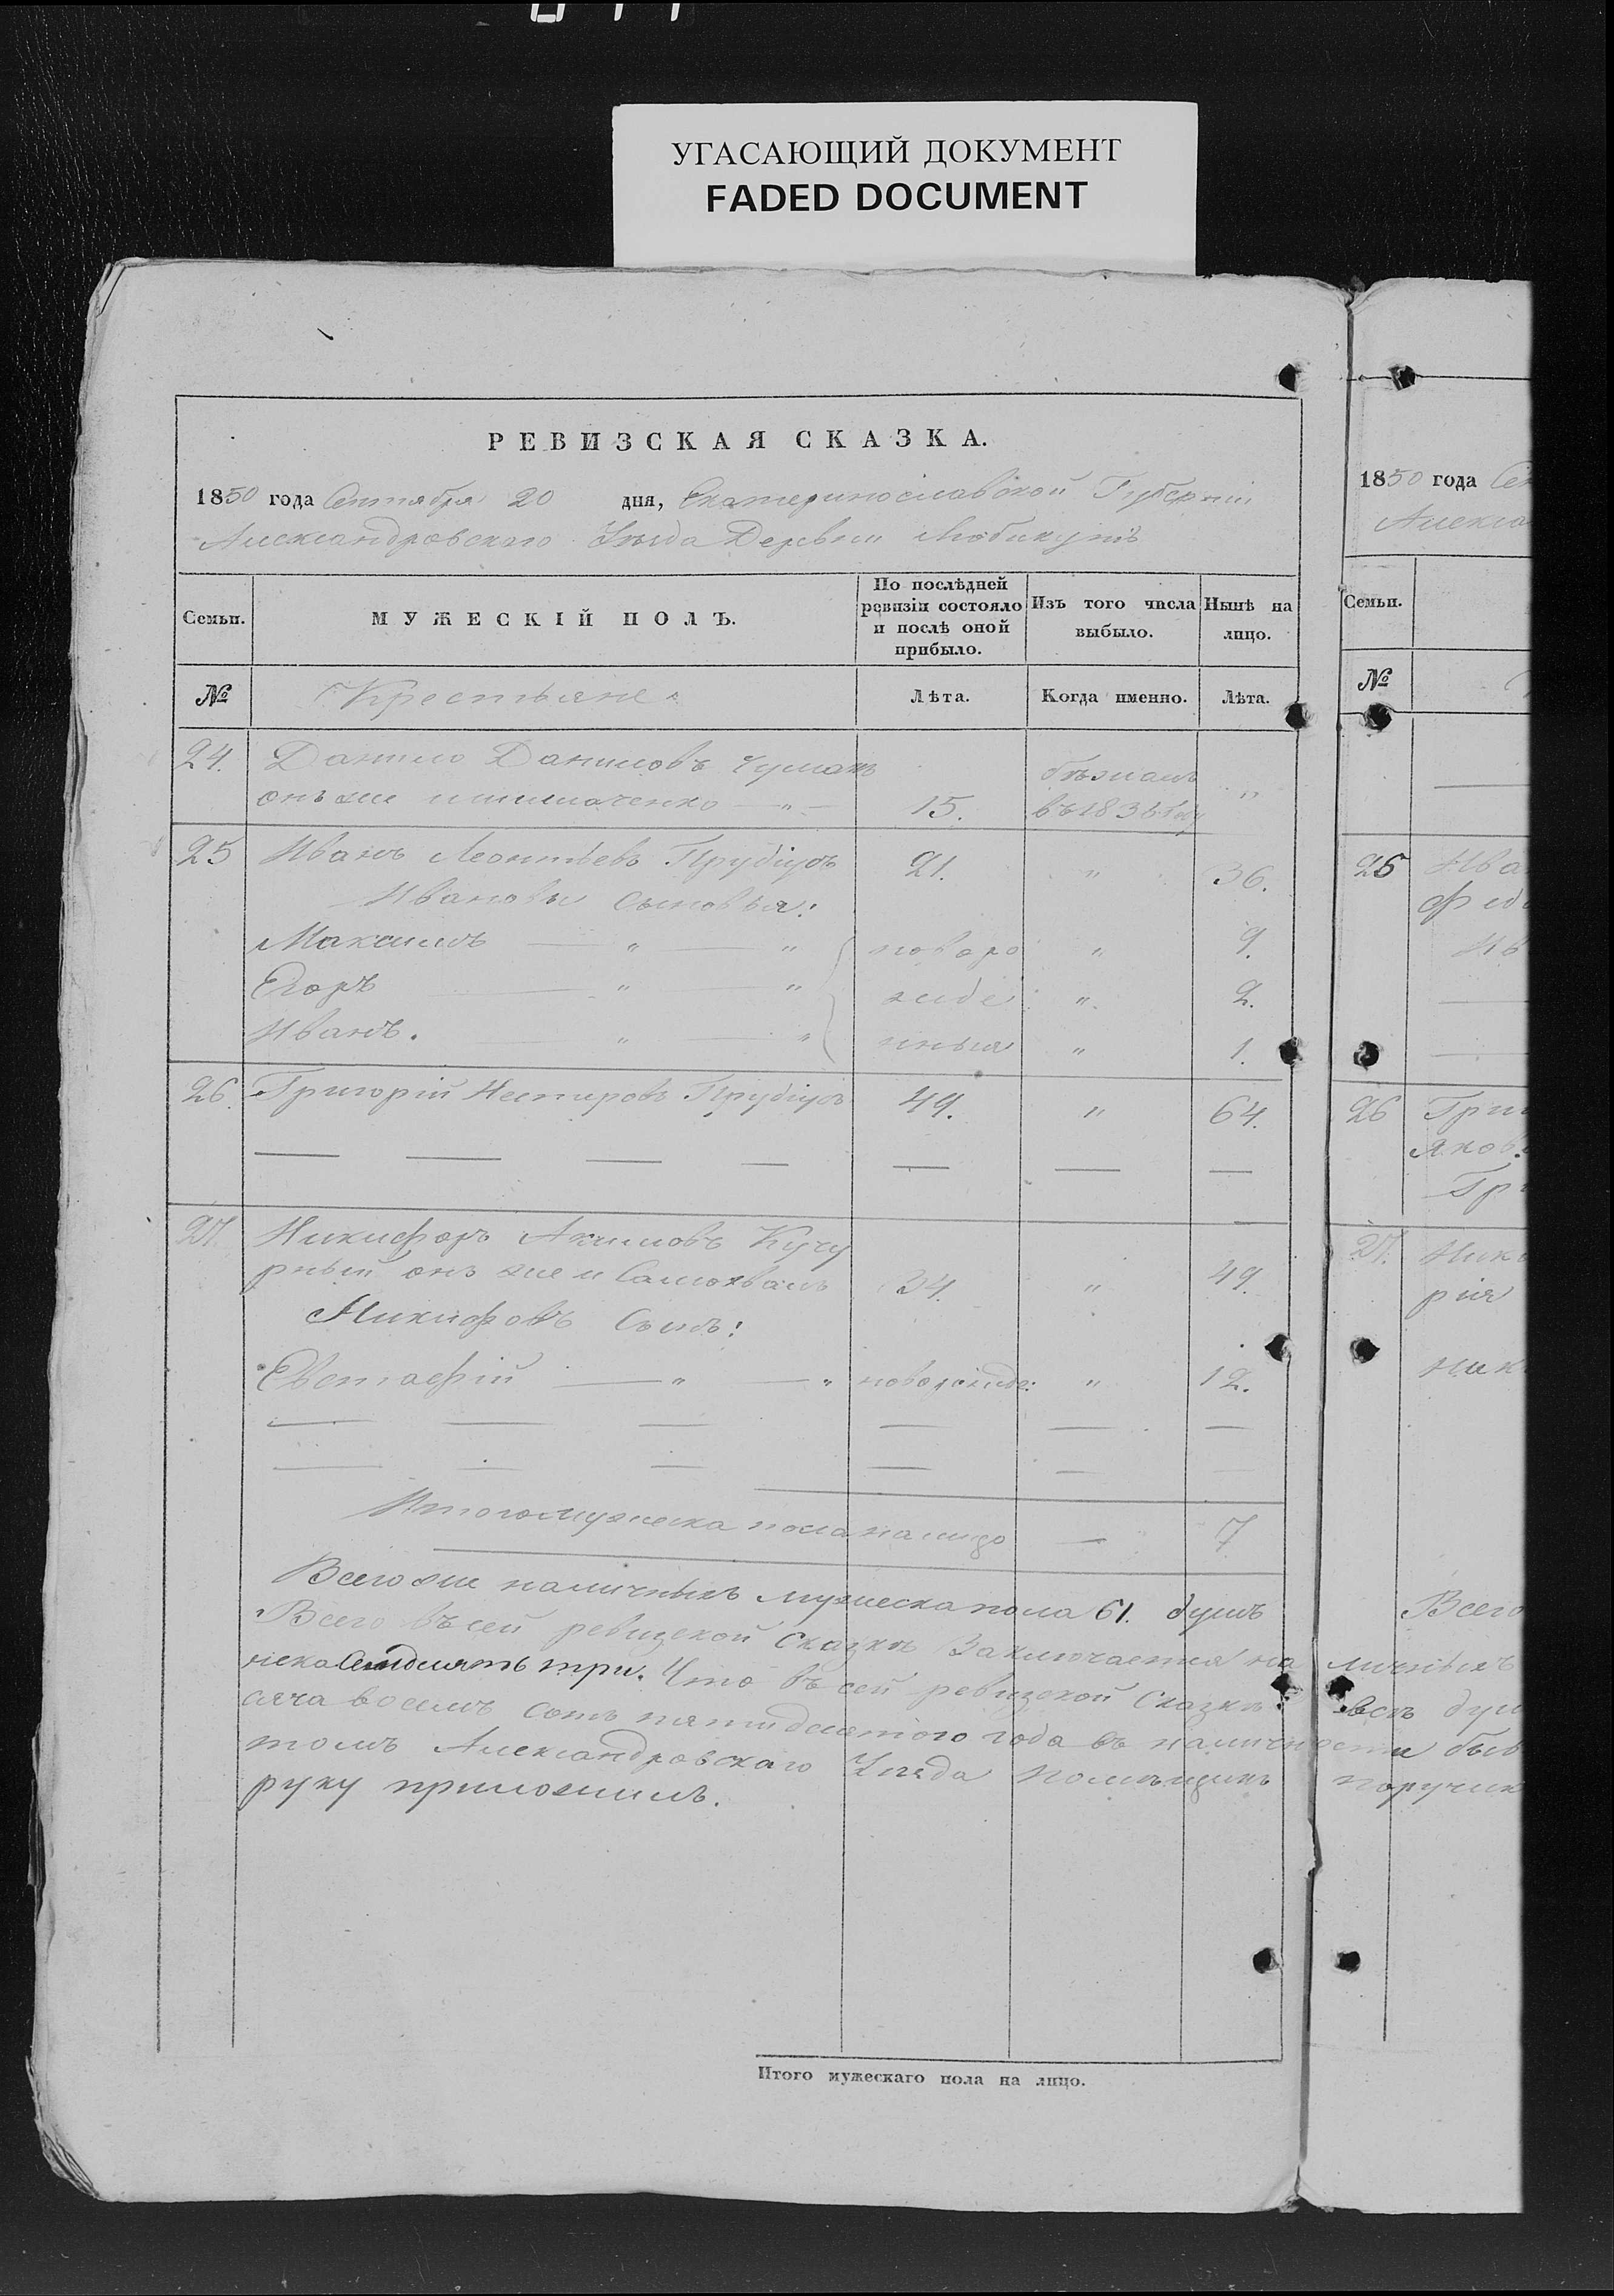 УГАСАЮЩИЙ ДОКУМЕНТ
FADED DOCUMENT
РЕВИЗСКАЯ СКАЗКА.
1850 года Сентября 20 дня, Екатеринославской Губернии
Александровскаго Уѣзда Деревни
Семьи.
МУЖЕСКІЙ ПОЛЪ.
По послѣдней ревизіи состояло и послѣ оной прибыло.
Изъ того числа выбыло.
Нынѣ на лицо.
№
Крестьяне
Лѣта.
Когда именно.
Лѣта.
24. Данило Даниловъ Чуманъ бѣжалъ
онъ же 15. въ 1836 году "
25 Иванъ Леонтьевъ 21. " 36.
Ивановы сыновья:
Максимъ " " новоро " 9.
Егоръ " " жде " 2.
Иванъ. " " нныя " 1.
26. Григорій Нестеровъ 49. " 64.
27. Никифоръ Акимовъ Кучу
рный онъ же и Самохвалъ 34. " 49.
Никифоръ сынъ:
Евстафій " " новорожде: " 12.
Итого мужеска пола на лицо — 7
Всего же наличныхъ мужеска пола 61. душъ
Всего въ сей ревизской сказкѣ заключается на
жеска Семдесятъ три. Что въ сей ревизской сказкѣ
сяча восемъ сотъ пятидесятого года въ наличности
томъ Александровскаго Уѣзда помѣщикъ
руку приложилъ.
Итого мужескаго пола на лицо.
1850 года Сен
Алекса
Семьи.
№
25 Ива
Федо
Ив
26 Гри
Яков
Гр
27. Ник
рия
Ник
Всего
личныхъ
всѣ душ
быв
поручик